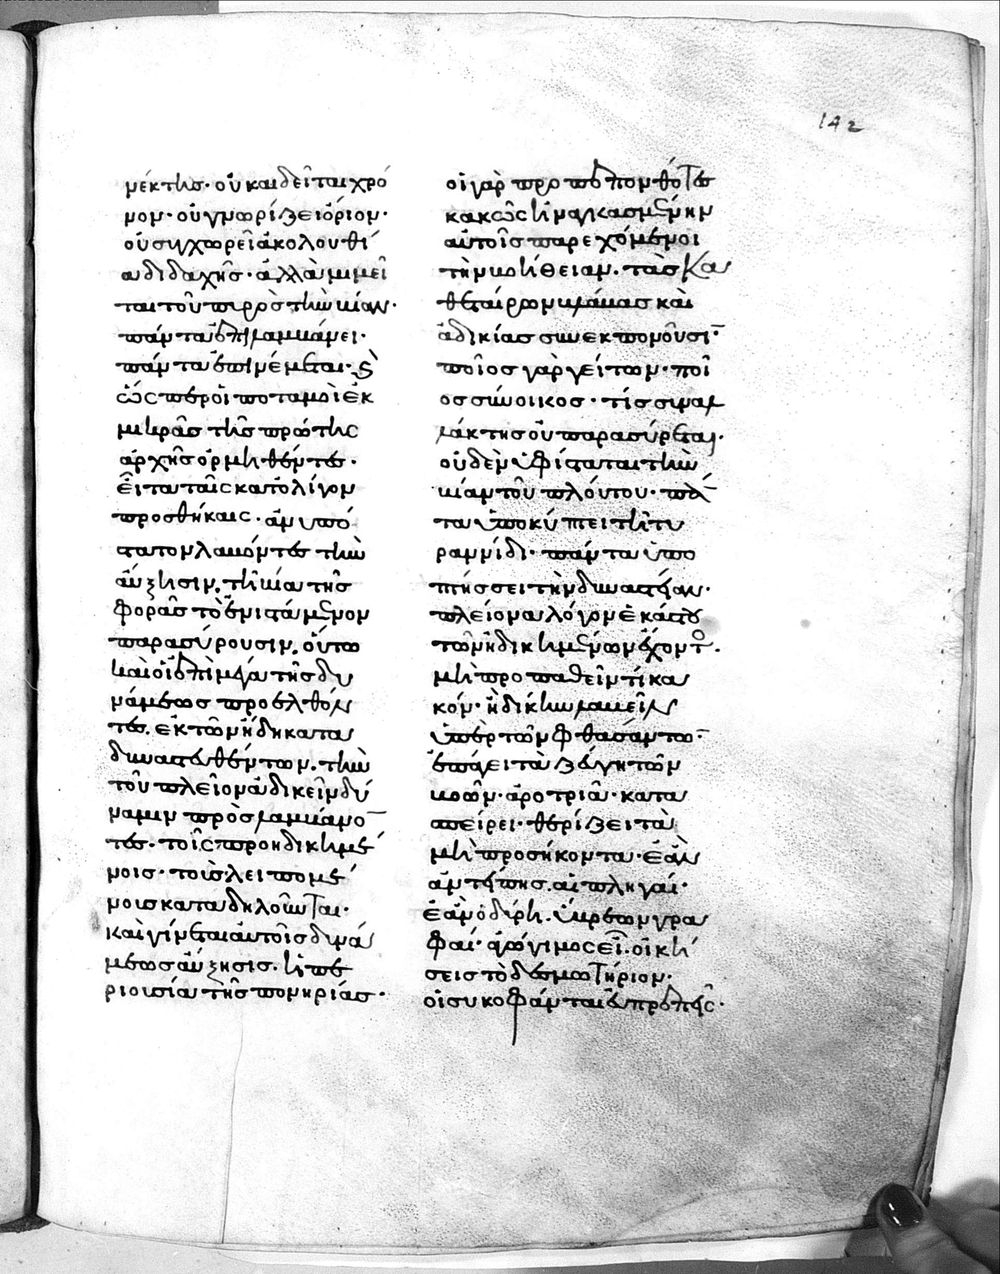 142
μέκτησ· οὐκ ἀναδεῖται χρό
νον· οὐ γνωρίζει ὅριον·
οὐ συγχωρεῖ ἀκολουθί
α διδαχῆς· ἀλλὰ μιμεῖ
ται τοῦ πυρὸς τὴν βίαν·
πάντα ἐπιλαμβάνει·
πάντα ἐπινέμεται· κ(αὶ)
ὥσπερ οἱ ποταμοὶ ἐκ
μικρᾶς τῆς πρώτης
ἀρχῆς ὁρμηθέντες·
εἶτα ταῖς κατολίγον
προσθήκαις· ἀνυπό
στατον λαβόντες τὴν
αὔξησιν, τῆ βία τῆς
φορᾶς τὸ ἐνιστάμενον
παρασύρουσιν, οὕτω
καὶ οἱ ἐπὶ μέγα τῆς δυ
νάμεως προελθόν
τες. ἐκ τῶν ἤδη κατα
δυναστευθέντων. τὴν
τοῦ πλείονα ἀδικεῖν δύ
ναμιν προσλαμβάνο(ν)
τες· τοῖς προηδικημέ
νοις· τοὺς λειπομέ
νους καταδουλοῦνται·
καὶ γίνεται αὐτοῖς δυνά
μεως αὔξησις. ἡ πε
ριουσία τῆς πονηρίας·
οἱ γὰρ προπεπονθότες
κακῶς ἠναγκασμένην
αὐτοῖς παρεχόμενοι
τὴν βοήθειαν. τὰς κα
θ' ἑταίρων βλάβας καὶ
ἀδικίας συνεκπονοῦσι(ν)
ποῖος γὰρ γείτων· ποῖ
ος σύνοικος· τίς συναλ
λάκτης οὐ παρασύρεται·
οὐδὲν ὑφίσταται τὴν
βίαν τοῦ πλούτου· πάν
τα ὑποκύπτει τῆ τυ
ραννίδι· πάντα ὑπο
πτήσσει τὴν δυναστείαν·
πλείονα λόγον ἑκάστου
τῶν ἠδικημένων ἔχοντο(ς)·
μὴ προπαθεῖν τί κα
κόν· ἢ δίκην λαβεῖν
ὑπὲρ τῶν φθασάντω(ν)
ἐπάγει τὰ ζεύγη τῶν
βοῶν· ἀροτριᾶ· κατα
σπείρει· θερίζει τὰ
μὴ προσήκοντα· ἐὰν
ἀντείπης. αἱ πληγαί·
ἐὰν ὀδύρη. ὕβρεων γρα
φαί· ἀγώγιμος εἶ· οἰκή
σεις τὸ δεσμωτήριον·
οἱ συκοφάνται εὐπρεπεῖς·